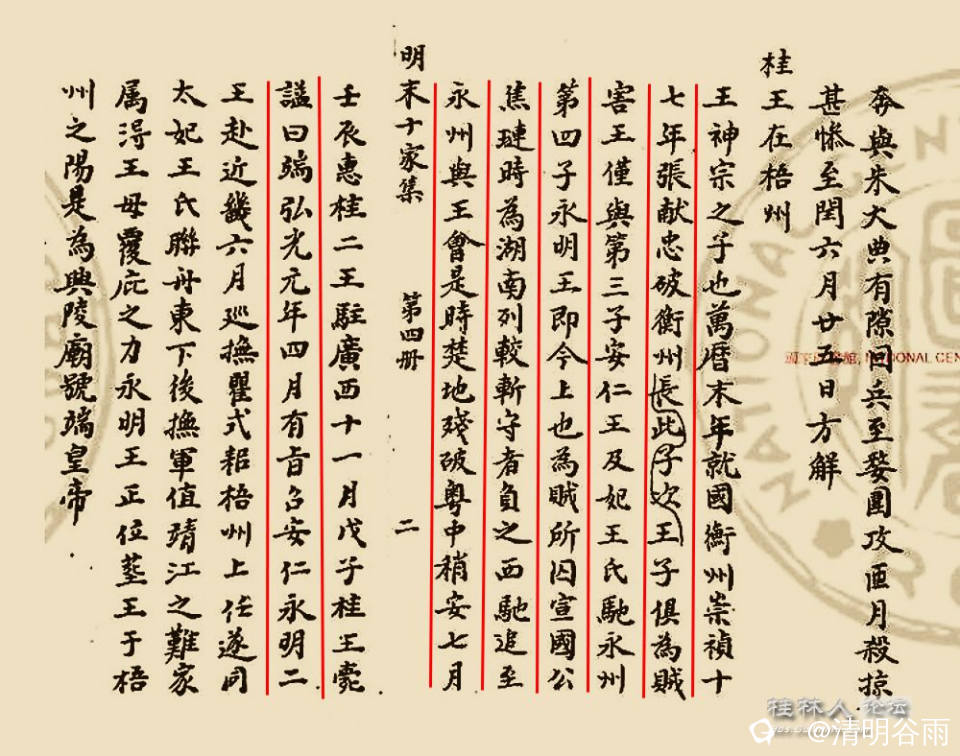 奔與朱大典有隙囘兵至婺圍攻匝月殺掠
甚慘至閏六月廿五日方解
桂王在梧州
王神宗之子也萬曆末年就國衡州崇禎十
七年張献忠破衡州長此子次王子俱為賊
害王僅與第三子安仁王及妃王氏馳永州
第四子永明王即今上也為賊所囚宣國公
焦璉時為湖南列較斬守者負之西馳追至
永州與王會是時楚地殘破粵中稍安七月
明末十家集 第四册 二
壬辰惠桂二王駐廣西十一月戊子桂王薨
諡曰端弘光元年四月有旨召安仁永明二
王赴近畿六月廵撫瞿式耜梧州上任遂同
太妃王氏聯舟東下後撫軍值靖江之難家
属淂王母覆庇之力永明王正位塟王于梧
州之陽是為興陵廟號端皇帝
國家圖書館, NATIONAL CEN
桂林人论坛
@清明谷雨